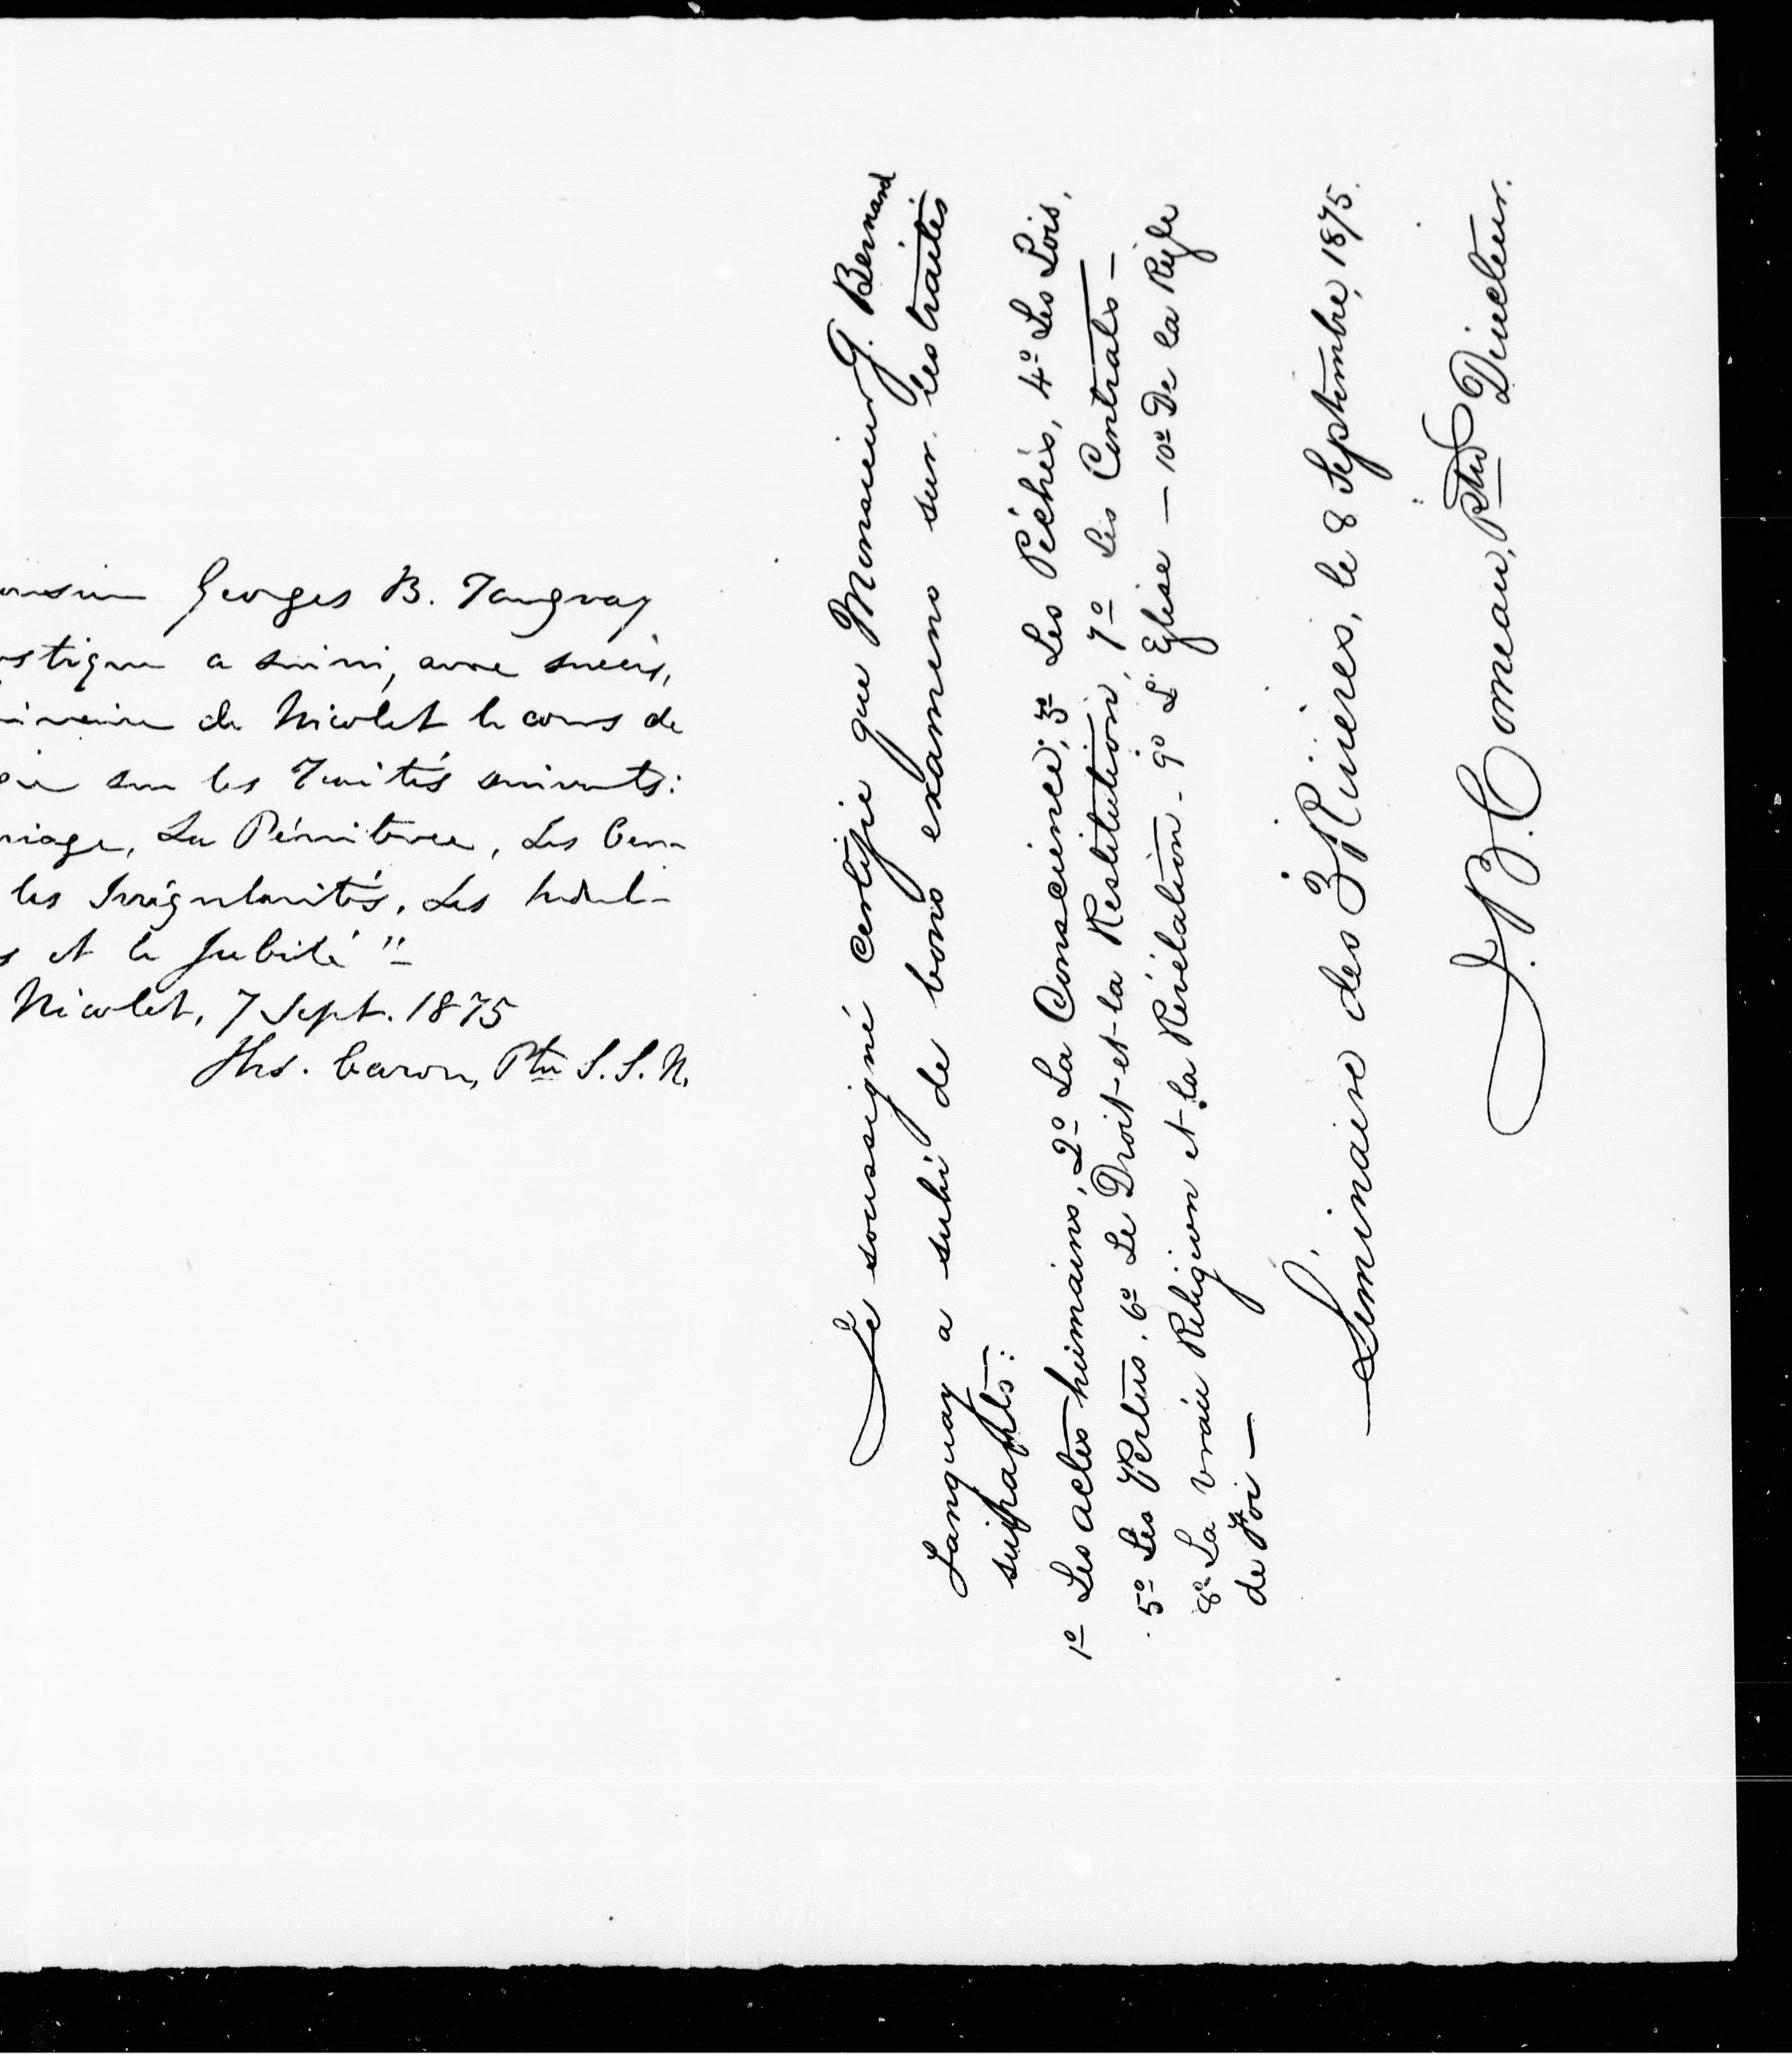 Georges B. Tanguay
a suivi, avec succès,
de Nicolet le cours de
sur les Traités suivants:
La Pénitence, Les Cen-
les Irrégularités, Les Indul-
et le Jubilé"
Nicolet, 7 Sept. 1875
Ths. Caron, Ptre S.S.N.
Le soussigné certifie que Monsieur G. Bernard
Tanguay a subi de bons examens sur les traités
suivants:
1o Les actes humains, 2o La Conscience; 3o Les Péchés, 4o Les Lois,
5o Les Vertus, 6o Le Droit et la Restitution, 7o Les Contrats —
8o La vraie Religion et la Révélation - 9o L'Eglise — 10o De la Règle
de Foi —
Séminaire des 3 Rivières, le 8 Septembre, 1875.
J. B. Comeau, Ptre Directeur.